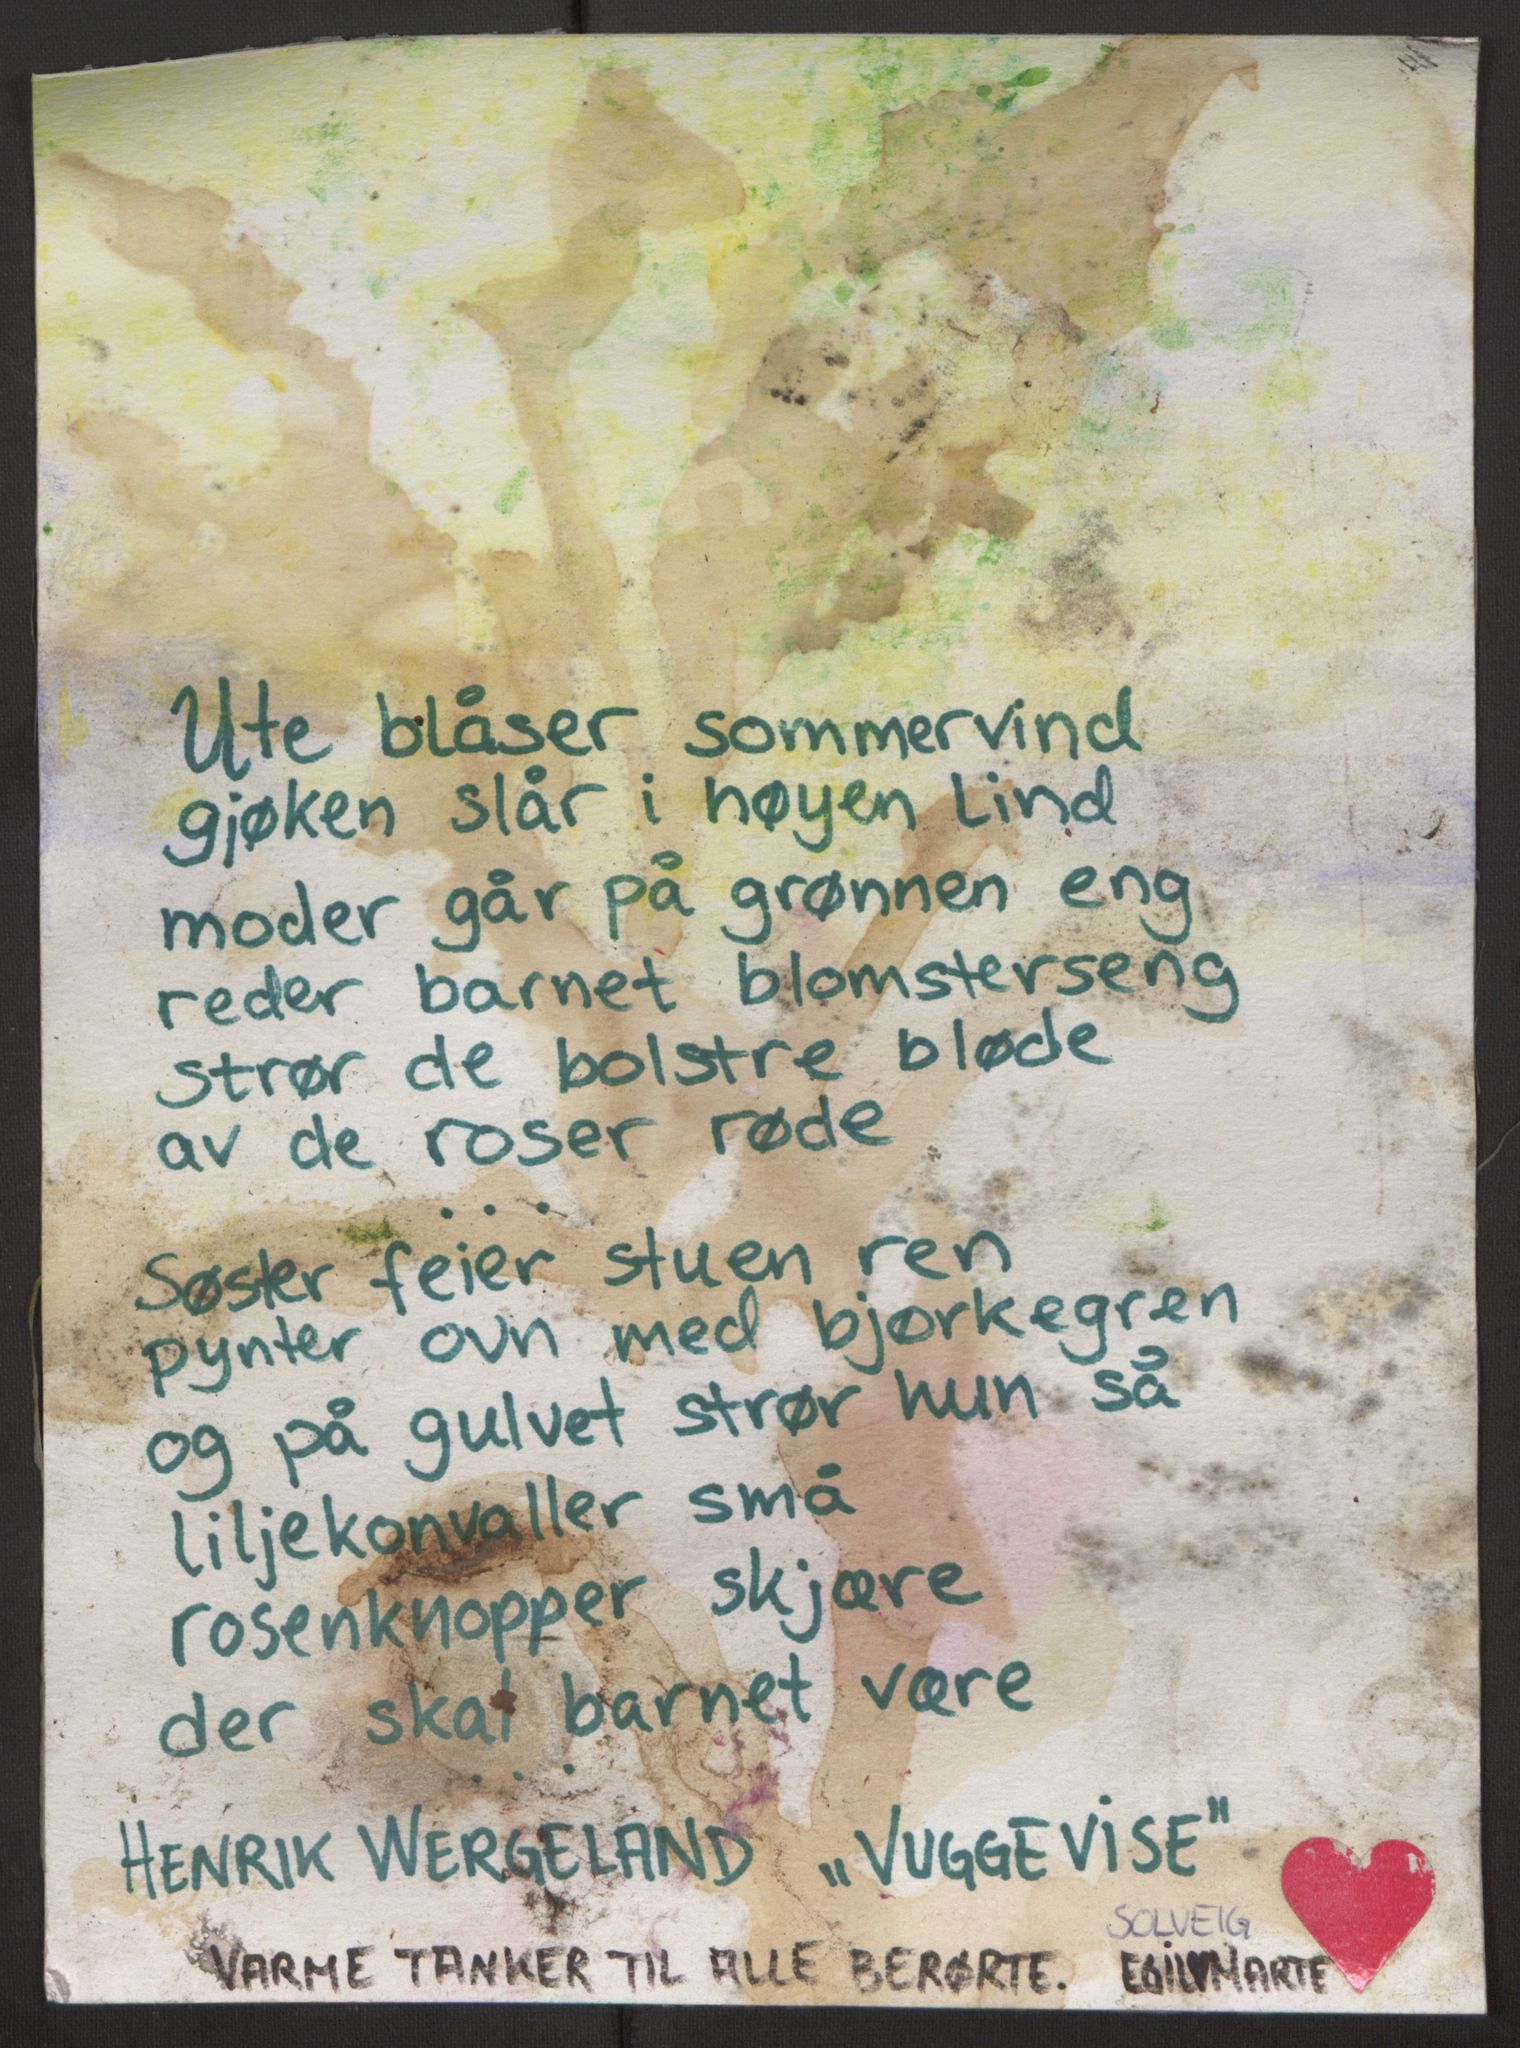 Ute blåser sommervind
gjøken slår i høyen Lind
moder går på grønnen eng
reder barnet blomsterseng
strør de bolstre bløde
av de roser røde
...
Søster feier stuen ren
pynter ovn med bjørkegren
og på gulvet strør hun så
liljekonvaller små
rosenknopper skjære
der skal barnet være
...
HENRIK WERGELAND „VUGGEVISE"
SOLVEIG
VARME TANKER TIL ALLE BERØRTE. EGIL♥MARTE